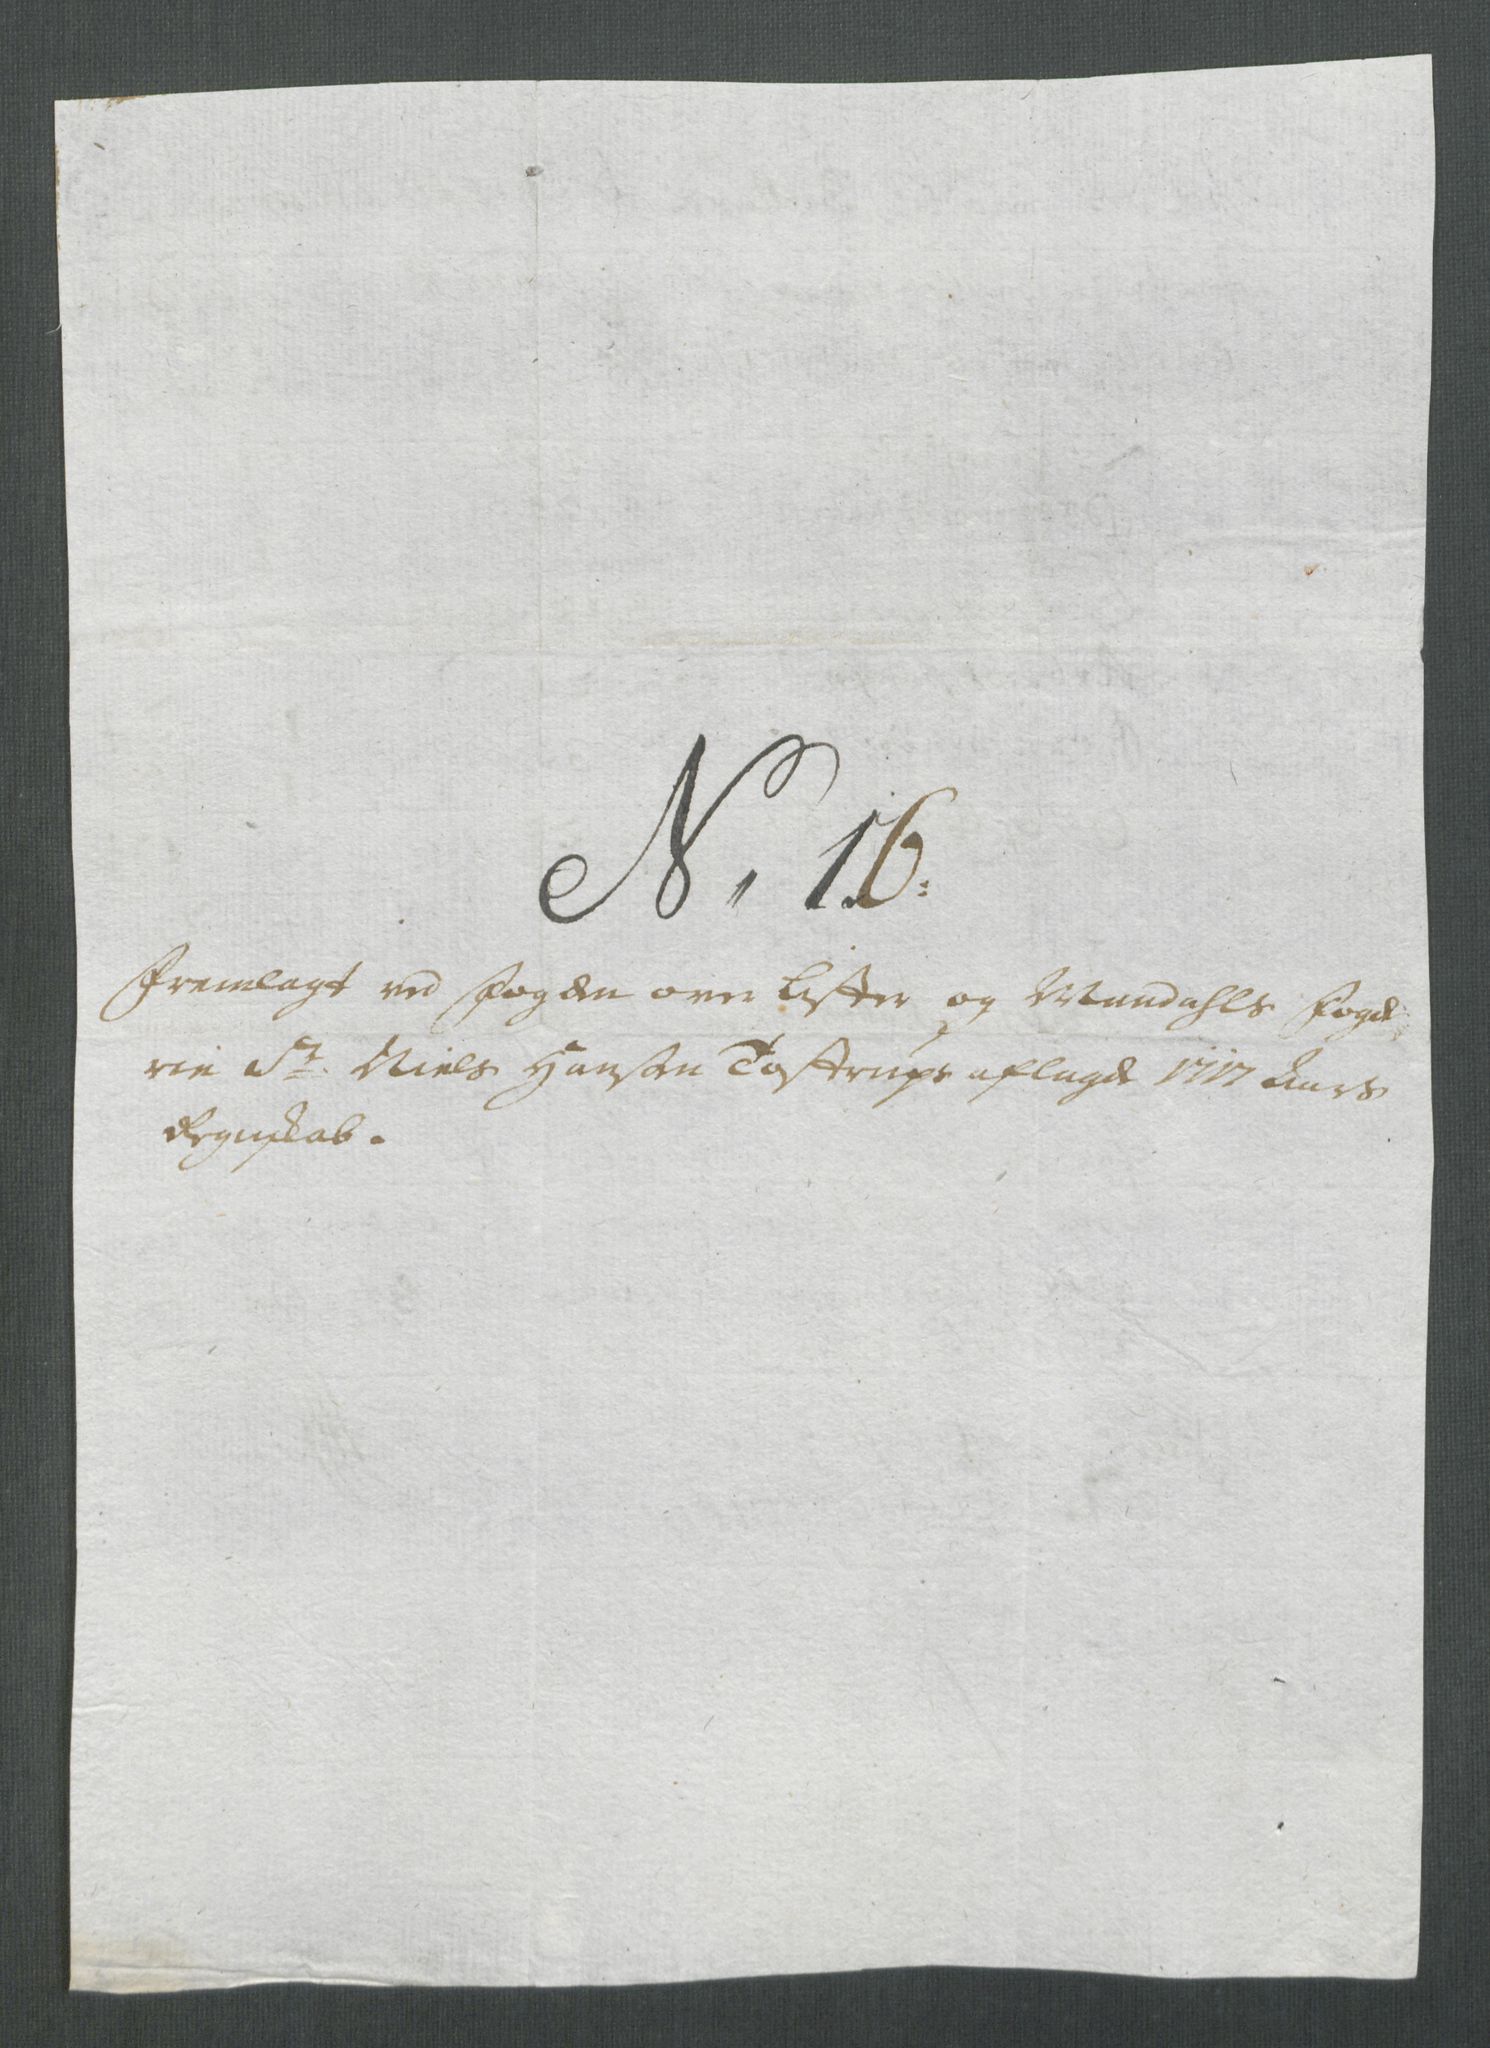 N. 16:
Fremlagt ved Fogden over Lister og Mandahls Fogde
rie Sr. Niels Hansen Tostrups aflagde 1717 Aars
Regnskab.